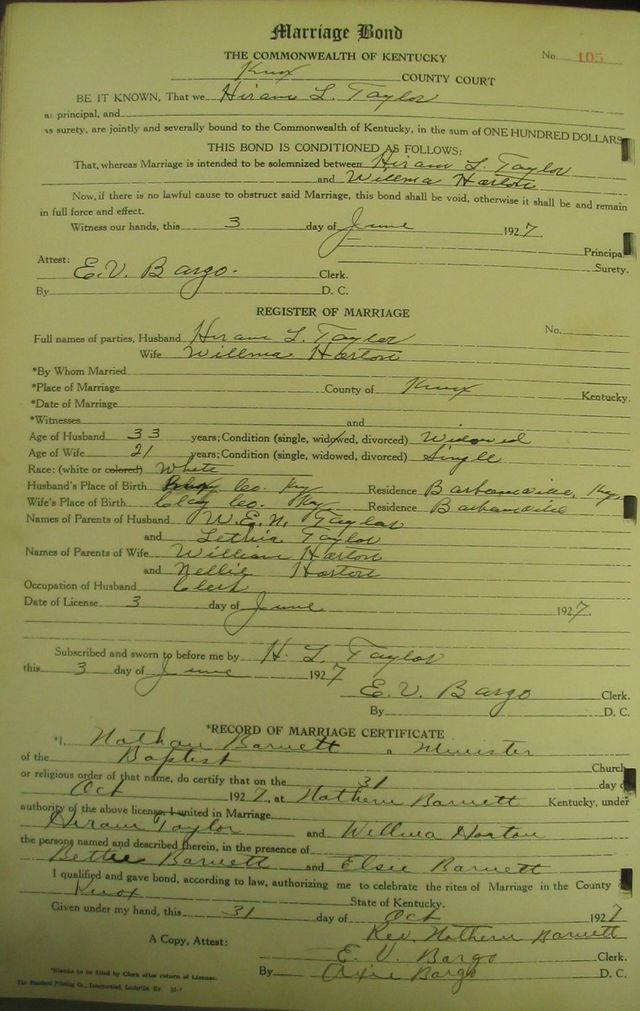 Marriage Bond
THE COMMONWEALTH OF KENTUCKY
No. 105
Knox COUNTY COURT
BE IT KNOWN, That we Hiram L. Taylor
as principal, and
as surety, are jointly and severally bound to the Commonwealth of Kentucky, in the sum of ONE HUNDRED DOLLARS
THIS BOND IS CONDITIONED AS FOLLOWS:
That, whereas Marriage is intended to be solemnized between Hiram L. Taylor
and Willma Horton
Now, if there is no lawful cause to obstruct said Marriage, this bond shall be void, otherwise it shall be and remain
in full force and effect.
Witness our hands, this 3 day of June 1927.
Principal
Attest: Surety.
E. V. Bargo. Clerk.
By D. C.
REGISTER OF MARRIAGE
No.
Full names of parties, Husband Hiram L. Taylor
Wife Willma Horton
*By Whom Married
*Place of Marriage County of Knox Kentucky.
*Date of Marriage
*Witnesses and
Age of Husband 33 years; Condition (single, widowed, divorced) Widowed
Age of Wife 21 years; Condition (single, widowed, divorced) Single
Race: (white or colored) White
Husband's Place of Birth Co. Ky Residence Barbourville, Ky.
Wife's Place of Birth Clay Co. Ky. Residence Barbourville
Names of Parents of Husband W. E. N. Taylor
and Lethia Taylor
Names of Parents of Wife William Horton
and Nellie Horton
Occupation of Husband Clerk
Date of License 3 day of June 1927.
Subscribed and sworn to before me by H. L. Taylor
this 3 day of June 1927
E. V. Bargo Clerk.
By D. C.
*RECORD OF MARRIAGE CERTIFICATE
*I, Nathan Barnett a Minister
of the Baptist Church
or religious order of that name, do certify that on the 31 day of
Oct 1927, at Nathern Barnett Kentucky, under
authority of the above license, I united in Marriage
Hiram Taylor and Willma Horton
the persons named and described therein, in the presence of
Bettie Barnett and Elsie Barnett
I qualified and gave bond, according to law, authorizing me to celebrate the rites of Marriage in the County of
Knox State of Kentucky.
Given under my hand, this 31 day of Oct 1927
Rev. Nathern Barnett
A Copy, Attest: E. V. Bargo Clerk.
By Bargo D. C.
*Blanks to be filled by Clerk after return of License.
The Standard Printing Co., Incorporated, Louisville, Ky.